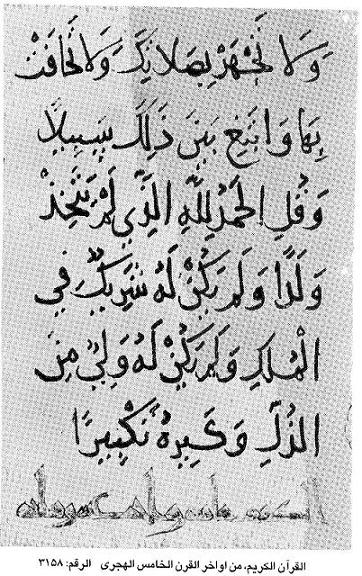 وَلَا تَجْهَرْ بِصَلَاتِكَ وَلَا تُخَافِتْ
بِهَا وَابْتَغِ بَيْنَ ذَلِكَ سَبِيلًا
وَقُلِ الْحَمْدُ لِلَّهِ الَّذِي لَمْ يَتَّخِذْ
وَلَدًا وَلَمْ يَكُنْ لَهُ شَرِيكٌ فِي
الْمُلْكِ وَلَمْ يَكُنْ لَهُ وَلِيٌّ مِنَ
الذُّلِّ وَكَبِّرْهُ تَكْبِيرًا
القرآن الكريم، من اواخر القرن الخامس الهجرى الرقم: ٣١٥٨